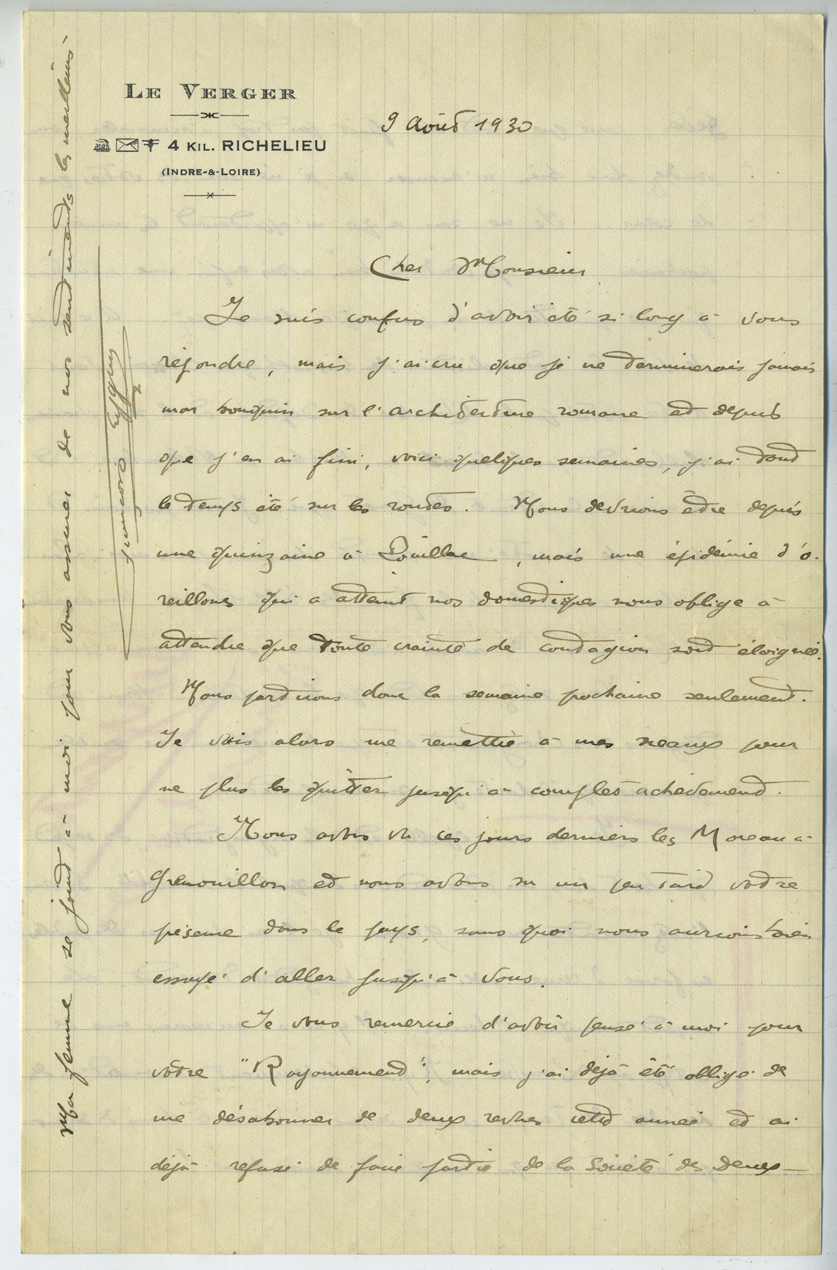 LE VERGER
4 KIL. RICHELIEU
(INDRE-&-LOIRE)
9 Août 1930
Cher Monsieur
Je suis confus d'avoir été si long à vous
répondre, mais j'ai cru que je ne terminerais jamais
mon bouquin sur l'architecture romane et depuis
que j'en ai fini, voici quelques semaines, j'ai tout
le temps été sur les routes. Nous devrions être depuis
une quinzaine à Souillac, mais une épidémie d'o-
reillons qui a atteint nos domestiques nous oblige à
attendre que toute crainte de contagion soit éloignée.
Nous partirons donc la semaine prochaine seulement.
Je vais alors me remettre à mes sceaux pour
ne plus les quitter jusqu'à complet achèvement.
Nous avons vu ces jours derniers les Moreau à
Grenouillon et nous avons su un peu tard votre
présence dans le pays, sans quoi nous aurions bien
essayé d'aller jusqu'à vous.
Je vous remercie d'avoir pensé à moi pour
votre "Rayonnement", mais j'ai déjà été obligé de
me désabonner de deux revues cette année et ai
déjà refusé de faire partie de la Société des Deux-
Ma femme se joint à moi pour vous assurer de nos sentiments les meilleurs.
François Eygun